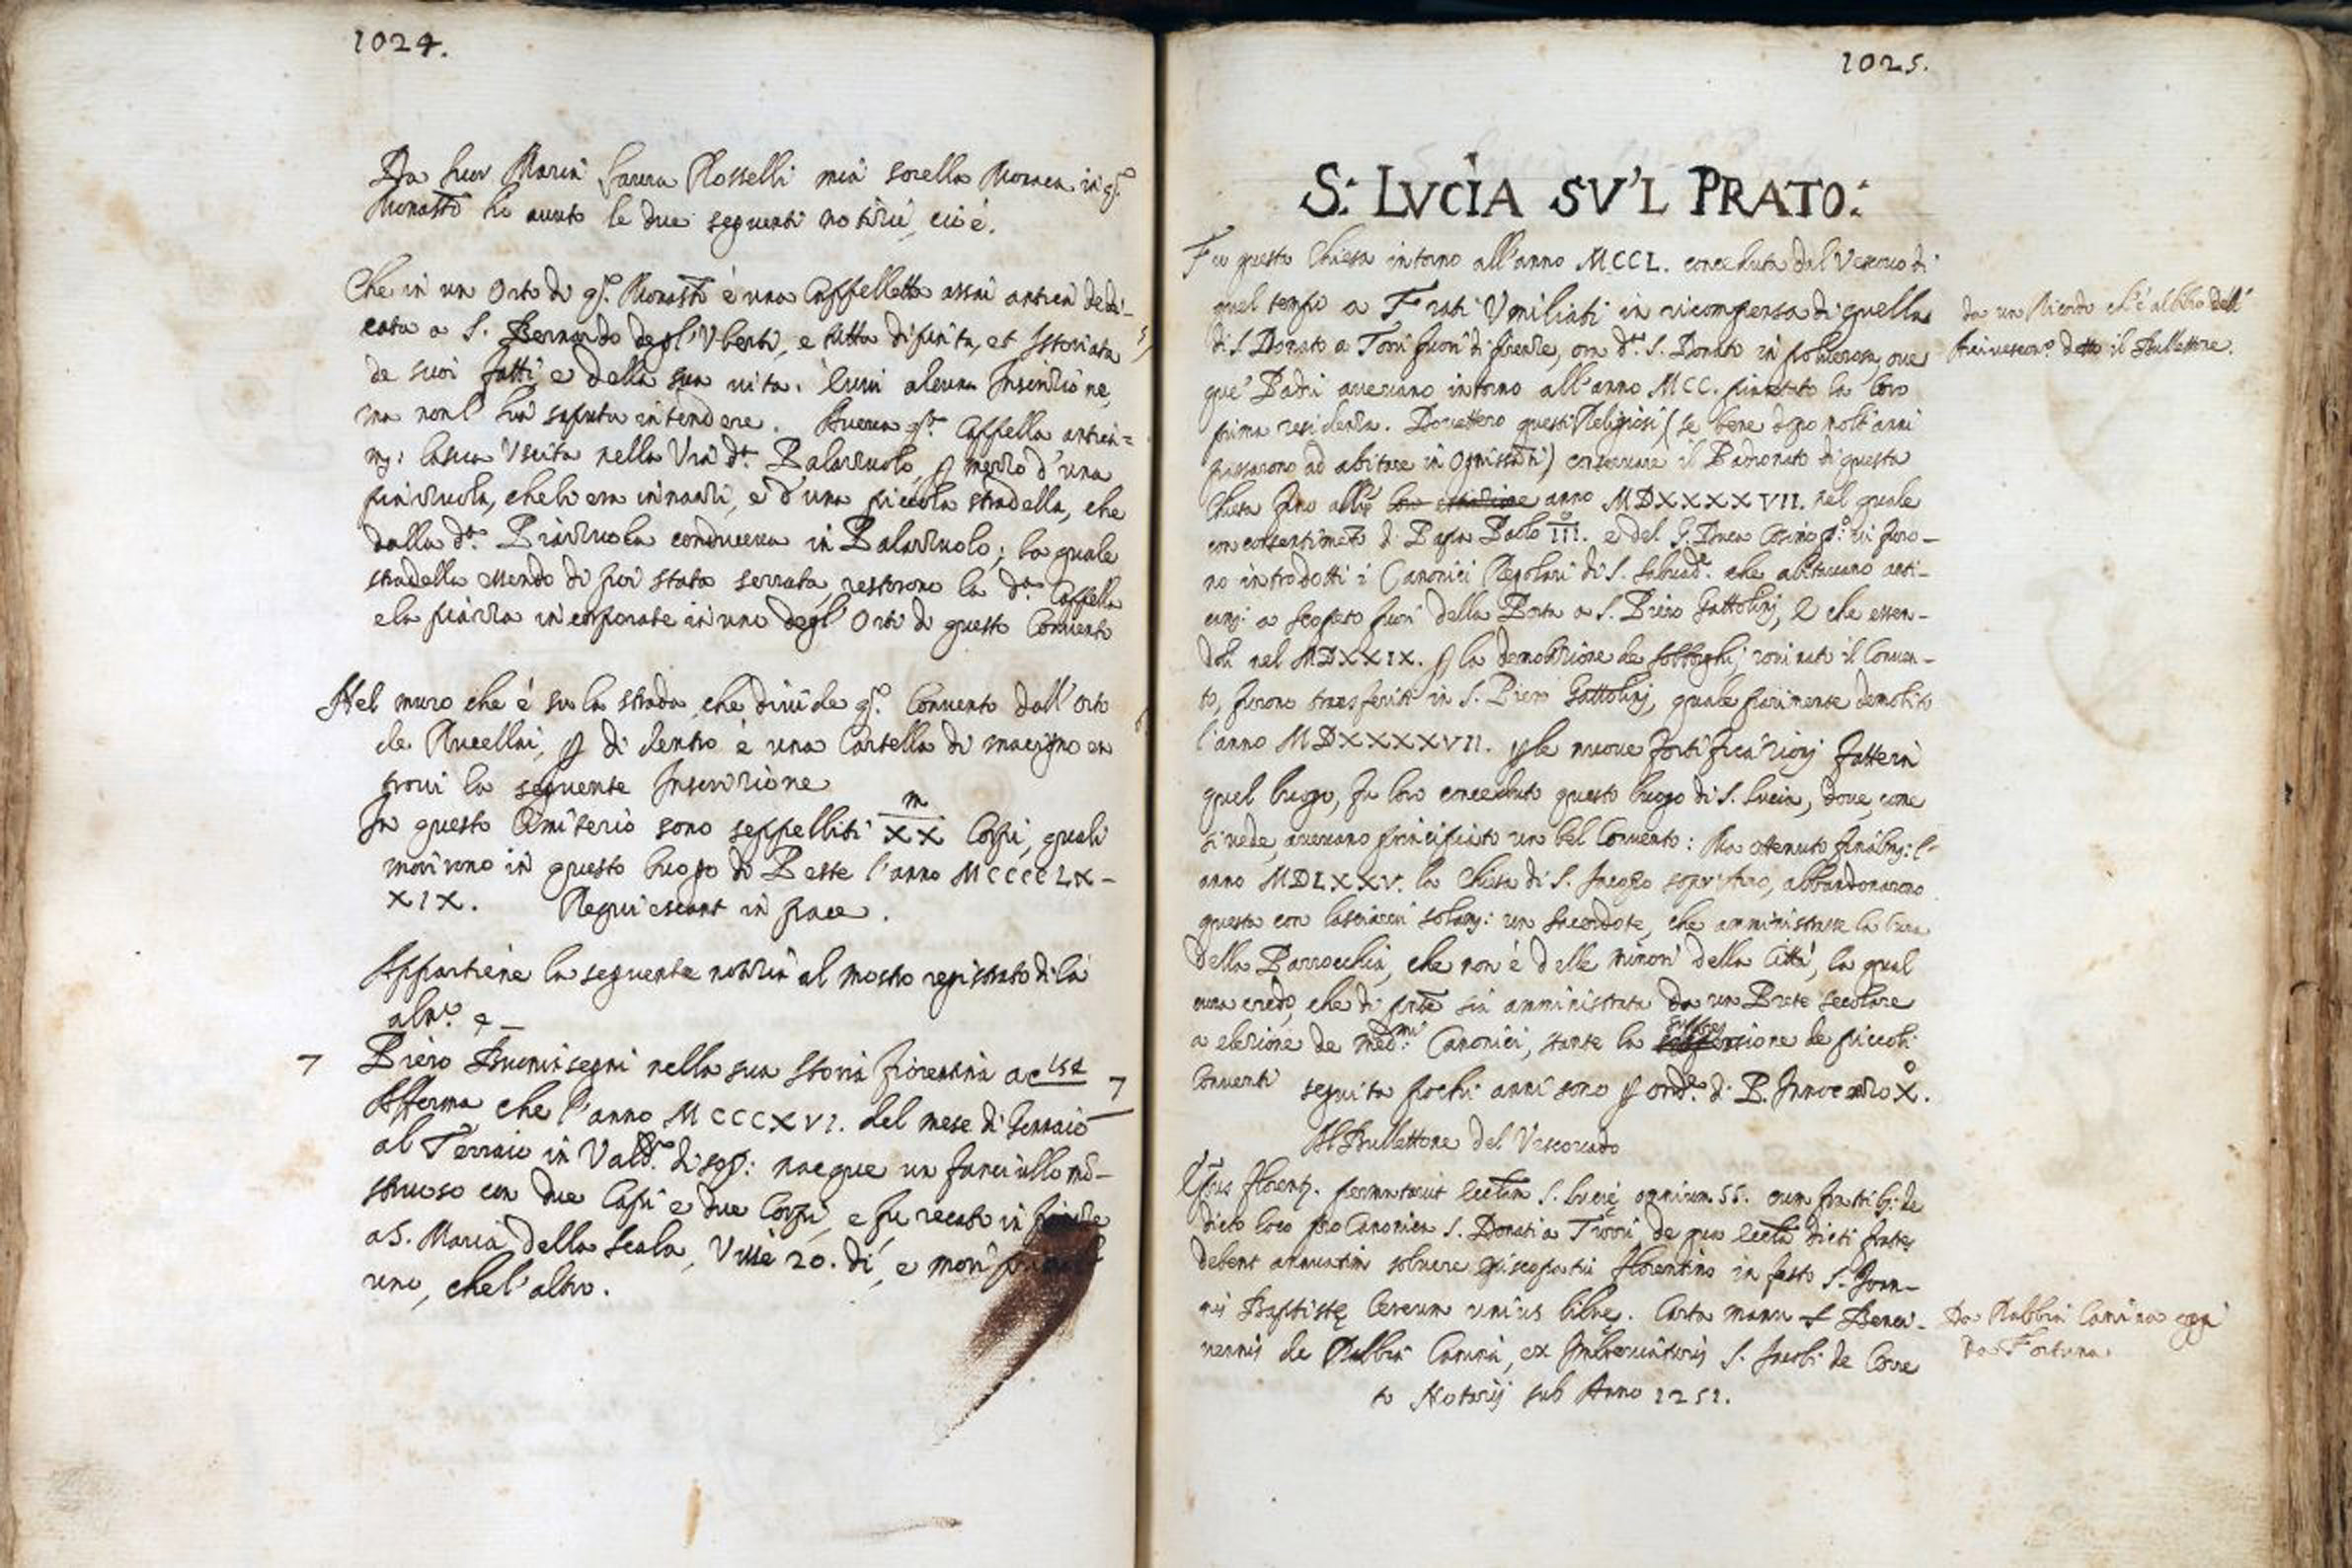 1024.
Da Suor Maria Laura Rosselli mia sorella Monaca in q.to
Monast.o ho auuto le due seguenti notizie, cioè.
Che in un Orto di q.to Monast.o è una Cappelletta assai antica dedi-
cata a S. Bernardo degl'Vberti, e tutta dipinta, et Istoriata
de suoi fatti, e della sua uita. Èuui alcuna Inscrizione,
ma non l'hà saputa intendere. Aueua q.ta Cappella antica-
m.te la sua Vscita nella Via d.ta Palazzuolo, p mezzo d'una
piazzuola, che l'era innanzi, e d'una piccola stradella, che
dalla d.ta Piazzuola conduceua in Palazzuolo; la quale
stradella essendo di poi stata serrata, restorono la d.ta Cappella
e la piazza incorporate in uno degl'Orti di questo Conuento
Nel muro che è su la strada, che diuide q.to Conuento dall'orto
de Rucellai, p di dentro è una Cartella di macigno en
troui la seguente Inscrizione
In questo Cimiterio sono seppelliti m XX Corpi, quali
morirono in questo luogo di Peste l'anno MCCCCLX-
XIX. Requiescant in pace.
Appartiene la seguente notizia al mostro registrato di là
7 Piero Buoninsegni nella sua Storia fiorentina a c 152 7
Afferma che l'anno MCCCXVI. del mese di Gennaio
al Terraio in Vald.o di sop: nacque un fanciullo mō-
struoso con due Capi e due Corpi, e fu recato in
a S. Maria della Scala, Visse 20. dì, e morì
uno, che l'altro.
1025.
S: LVCIA SV'L PRATO:
Fu questa Chiesa intorno all'anno MCCL. conceduta dal Vescouo di
quel tempo a Frati Vmiliati in ricompensa di quella
di S. Donato a Torri fuori di firenze, ora d.to S. Donato in poluerosa, oue
que' Padri aueuano intorno all'anno MCC. piantato la loro
prima residenza. Douettero questi Religiosi (se bene dopo molt'anni
passarono ad abitare in Ognissanti) conseruare il Padronato di questa
Chiesa fino all' anno MDXXXXVII. nel quale
con consentimento di Papa Paolo III. e del G. Duca Cosimo p.o ui furo-
no introdotti i Canonici Regolari di S. Saluad.e che abitauano anti-
cam: a Scopeto fuori della Porta a S. Piero Gattolinj, e che essen-
doli nel MDXXIX. p la demolizione de sobborghj rouinato il Conuen-
to, furono trasferiti in S. Piero Gattolinj, quale parimente demolito
l'anno MDXXXXVII. p le nuoue fortificazionj fatte in
quel luogo, fu loro conceduto questo luogo di S. Lucia, doue, come
si uede, aueuano principiato un bel Conuento: Ma ottenuto finalm: l'
anno MDLXXV. la Chiesa di S. Iacopo sopr'Arno, abbandonarono
questa con lasciarui solam: un Sacerdote, che amministrasse la Cura
della Parrocchia, che non è delle minori della Città, la qual
cura credo, che di pnte sia amministrata da un Prete secolare
a elezione de med.mi Canonici, stante la suppressione de piccoli
Conuenti seguita pochi anni sono p ord.e di P. Innocenzio X.
Al Bullettone del Vescouado
Epus florent. permutauit Ecclam S. Lucię omnium SS. cum fratribs: de
dicto loco pro Canonica S. Donati a Torri, de qua Eccla dicti fratres
debent annuatim soluere episcopatui florentino in festo S. Joan-
nis Baptistę Cereum unius librę. Carta manu f Bene-
uennis de Rabbia Canina, ex Imbreuiaturis S. Iacobi de Cerre
to Notarij sub Anno 1251.
da un Ricordo ch'è al libro dell'
Arciuescou.o detto il Bullettone.
Da Rabbia Canina oggi
Da Fortuna.